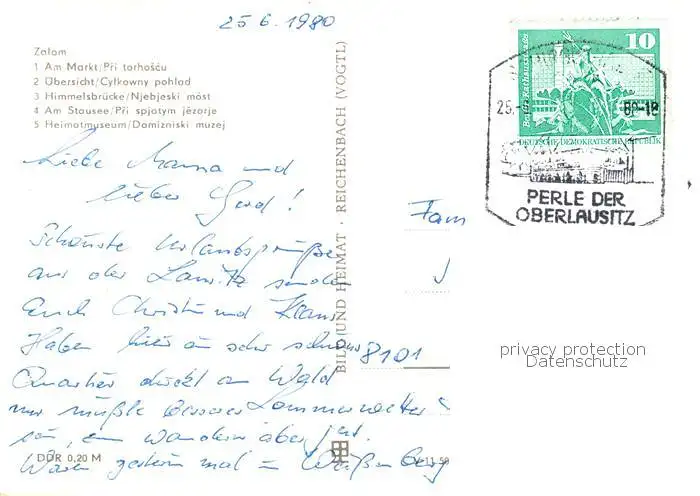 25 6. 1980
Załom
1 Am Markt/Při torhošću
2 Übersicht/Cyłkowny pohlad
3 Himmelsbrücke/Njebjeski móst
4 Am Stausee/Při spjatym jězorje
5 Heimatmuseum/Domizniski muzej
Liebe Mama und
lieber Gerd!
Schönste Urlaubsgrüße
aus der Lausitz senden
Euch Christin und Klaus
Haben hier ein sehr schönes
Quartier direkt am Wald
nur müßte besseres Sommerwetter
sein, zum wandern aber gut.
Waren gestern mal in Weißenberg
DDR 0,20 M
BILD UND HEIMAT · REICHENBACH (VOGTL)
Fam
8101
10
DEUTSCHE DEMOKRATISCHE REPUBLIK
25.
80-18
PERLE DER
OBERLAUSITZ
privacy protection
Datenschutz